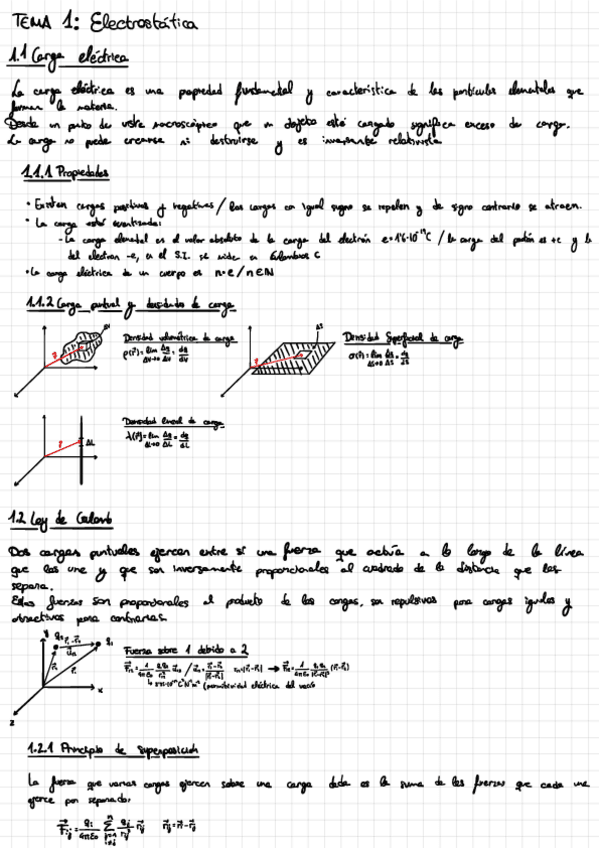 TEMA 1: Electrostática
1.1 Carga eléctrica
La carga eléctrica es una propiedad fundamental y característica de las partículas elementales que
forman la materia.
Desde un punto de vista macroscópico que un objeto esté cargado significa exceso de carga.
La carga no puede crearse ni destruirse y es invariante relativista
1.1.1 Propiedades
• Existen cargas positivas y negativas / las cargas con igual signo se repelen y de signo contrario se atraen.
• La carga está cuantizada:
- La carga elemental es el valor absoluto de la carga del electrón e=1'6·10⁻¹⁹C / la carga del protón es +e y la
del electron -e, en el S.I. se mide en Culombios C
• La carga eléctrica de un cuerpo es n·e / n∈ℕ
1.1.2 Carga puntual y densidades de carga
Densidad volumétrica de carga
ρ(r⃗)= lim Δq/ΔV = dq/dV
ΔV→0
Densidad Superficial de carga
σ(r⃗)= lim Δq/ΔS = dq/dS
ΔS→0
ΔS
Densidad lineal de carga
λ(r⃗)= lim Δq/ΔL = dq/dL
ΔL→0
ΔL
1.2 Ley de Coulomb
Dos cargas puntuales ejercen entre sí una fuerza que actúa a lo largo de la línea
que las une y que son inversamente proporcionales al cuadrado de la distancia que las
separa.
Estas fuerzas son proporcionales al producto de las cargas, son repulsivas para cargas iguales y
atractivas para contrarias.
Fuerza sobre 1 debido a 2
(permitividad eléctrica del vacío
x
z
1.2.1 Principio de Superposición
La fuerza que varias cargas ejercen sobre una carga dada es la suma de las fuerzas que cada una
ejerce por separado: